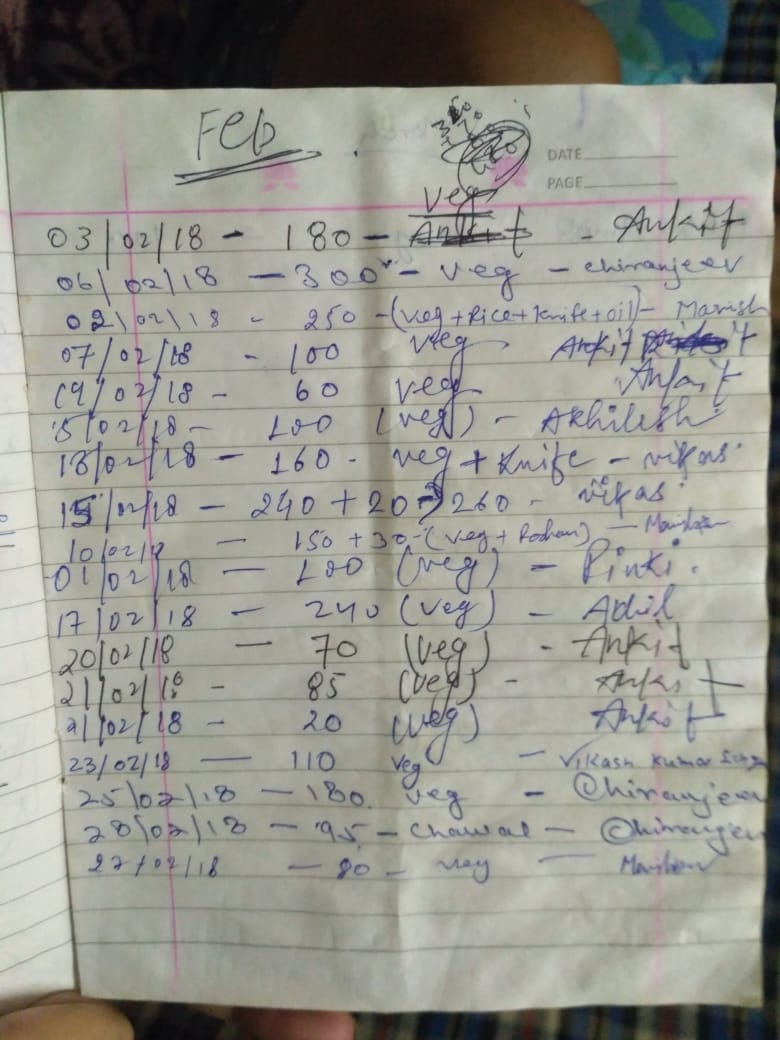 Feb
DATE
PAGE
Veg
03/02/18 - 180 - - Ankit
06/02/18 - 300 - veg - chiranjeev
02/02/18 - 250 - (veg+Rice+knife+oil) - Manish
07/02/18 - 100 veg Ankit
19/02/18 - 60 veg Ankit
15/02/18 - 100 (veg) - Akhilesh
18/02/18 - 160 - veg + Knife - vikas
15/02/18 - 240 + 20 260 - vikas
10/02/18 - 150 + 30 - (veg +
01/02/18 - 100 (veg) - Pinki.
17/02/18 - 240 (veg) -
20/02/18 - 70 (veg) - Ankit
21/02/18 - 85 (veg) - Ankit
21/02/18 - 20 (veg) Ankit
23/02/18 - 110 veg - Vikash Kumar
25/02/18 - 180. veg - Chiranjeev
28/02/18 - 95 - Chawal - Chiranjeev
27/02/18 - 80 - veg -